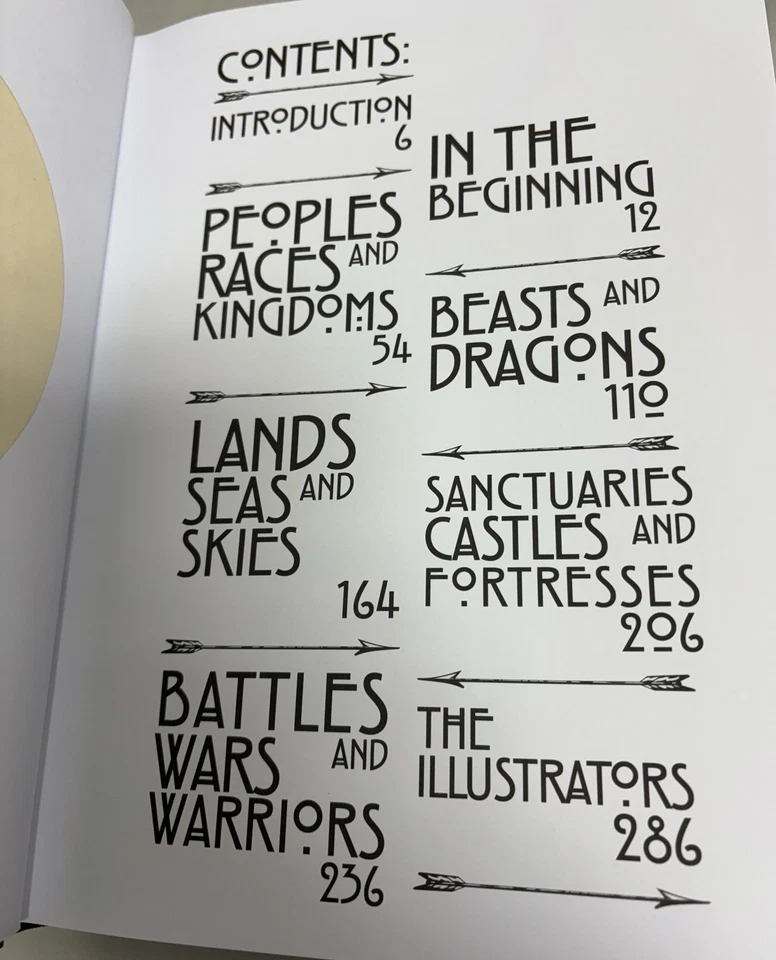 CONTENTS:
INTRODUCTION
6
IN THE
BEGINNING
12
PEOPLES
RACES AND
KINGDOMS
54
BEASTS AND
DRAGONS
110
LANDS
SEAS AND
SKIES
164
SANCTUARIES
CASTLES AND
FORTRESSES
206
BATTLES
WARS AND
WARRIORS
236
THE
ILLUSTRATORS
286